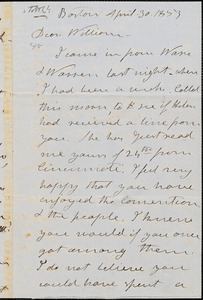 Boston April 30. 1853
Dear William -
I came in from Ware
& Warren last night, where
I had been a week. Called
this noon to see if Helen
had received a line from
you. She has just read
me yours of 24th from
Cincinnati. I feel very
happy that you have
enjoyed the Convention
& the people. I knew
you would if you once
got among them.
I do not believe you
could have spent a